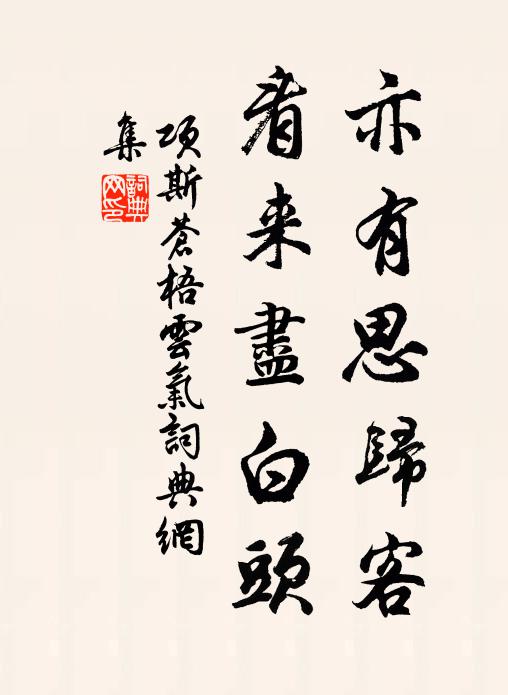 亦有思歸客
看来盡白頭
項斯蒼梧雲氣詞典網
集
詞典網印